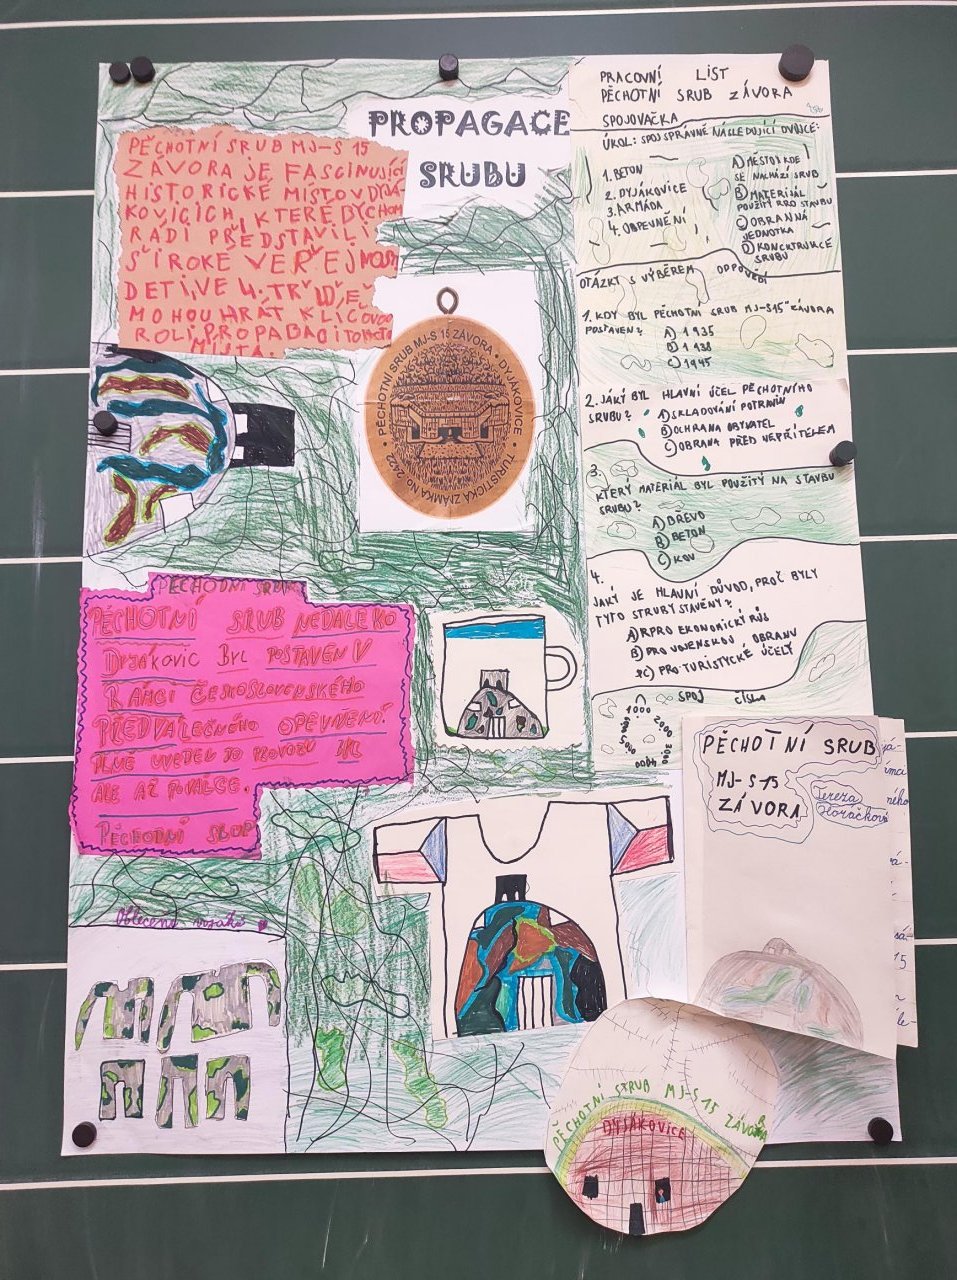 PROPAGACE
SRUBU
PĚCHOTNÍ SRUB MJ-S 15
ZÁVORA JE FASCINUJÍCÍ
HISTORICKÉ MÍSTO V DYJÁ-
KOVICÍCH, KTERÉ BYCHOM
RÁDI PŘEDSTAVILI
ŠIROKÉ VEŘEJNOSTI
DĚTI VE 4. TŘÍDĚ
MOHOU HRÁT KLÍČOVOU
ROLI PROPAGACI TOHOTO
MÍSTA.
PĚCHOTNÍ SRUB MJ-S 15 ZÁVORA • DYJÁKOVICE •
TURISTICKÁ ZNÁMKA No. 2422
PĚCHODNÍ SRUB
PĚCHOTNÍ SRUB NEDALEKO
DYJÁKOVIC BYL POSTAVEN V
RÁMCI ČESKOSLOVENSKÉHO
PŘEDVÁLEČNÉHO OPEVNĚNÍ.
PLNĚ UVEDEN DO PROVOZU BYL
ALE AŽ PO VÁLCE.
PĚCHODNÍ SRUB
Oblečení vojáků
PRACOVNÍ LIST
PĚCHOTNÍ SRUB ZÁVORA
SPOJOVAČKA
ÚKOL: SPOJ SPRÁVNĚ NÁSLEDUJÍCÍ DVOJCE:
1. BETON
2. DYJÁKOVICE
3. ARMÁDA
4. OBPEVNĚNÍ
A) MĚSTO KDE
SE NACHÁZÍ SRUB
B) MATERIÁL
POUŽITÝ PRO STAVBU
C) OBRANNÁ
JEDNOTKA
D) KONCKTRUKCE
SRUBU
OTÁZKY S VÝBĚREM ODPOVĚDÍ
1. KDY BYL PĚCHOTNÍ SRUB MJ-S15 "ZÁVORA
POSTAVEN?
A) 1935
B) 1138
C) 1945
2. JAKÝ BYL HLAVNÍ ÚČEL PĚCHOTNÍHO
SRUBU?
A) SKLADOVÁNÍ POTRAVIN
B) OCHRANA OBYVATEL
C) OBRANA PŘED NEPŘÍTELEM
3.
KTERÝ MATERIÁL BYL POUŽITÝ NA STAVBU
SRUBU?
A) DŘEVO
B) BETON
C) KOV
4.
JAKÝ JE HLAVNÍ DŮVOD, PROČ BYLY
TYTO STRUBY STAVĚNY?
B) PRO VOJENSKOU OBRANU
C) PRO TURISTICKÉ ÚČELY
SPOJ ČÍSLA
1000
2000
3000
4000
5000
PĚCHOTNÍ SRUB
MJ-S 15
ZÁVORA
Tereza
Horáčková
PĚCHOTNÍ SRUB MJ-S15 ZÁVORA
DYJÁKOVICE